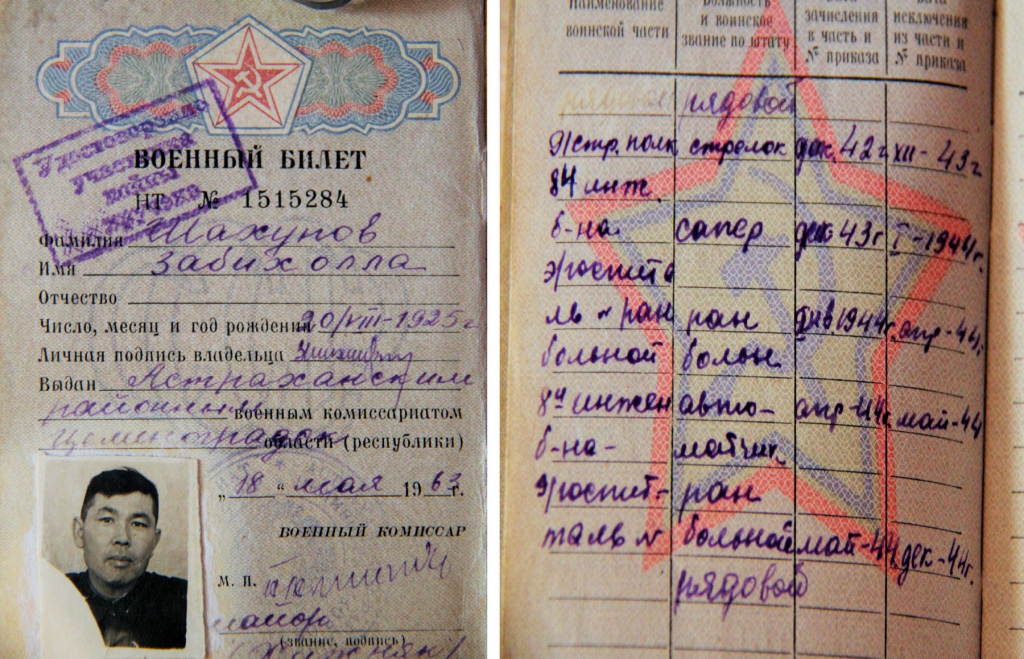 Удостоверение
участника
войны
ВОЕННЫЙ БИЛЕТ
НТ № 1515284
Фамилия Махупов
Имя Забихолла
Отчество
Число, месяц и год рождения 20/VIII-1925г
Личная подпись владельца
Выдан Астраханским
районным военным комиссариатом
области (республики)
„18“ мая 1963г.
ВОЕННЫЙ КОМИССАР
М. П.
майор
(звание, подпись)
Наименование воинской части
и воинское звание по штату
зачисления в часть и № приказа
Дата исключения из части и № приказа
рядовой рядовой
9/стр. полк стрелок дек 42 г XII-43 г
84 инж.
б-на сапер дек 43 г I-1944 г.
э/госпита
ль ран ран янв 1944 г. апр-44 г.
больной болен
84 инжен авто- апр-44 г. май-44
б-на- матчик
Э/госпит- ран
таль № больной май-44 дек-44 г.
рядовой